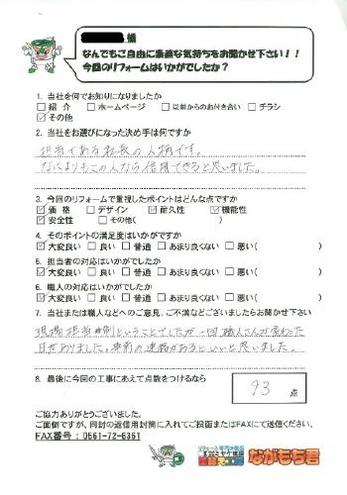 様
なんでもご自由に素直な気持ちをお聞かせ下さい！！
今回のリフォームはいかがでしたか？
1. 当社を何でお知りになりましたか
□ 紹 介 □ ホームページ □ 以前からのお付き合い □ チラシ
☑ その他
2. 当社をお選びになった決め手は何ですか
担当である社長の人柄です。
なによりもこの人なら信頼できると思いました。
3. 今回のリフォームで重視したポイントはどんな点ですか
☑ 価 格 □ デザイン ☑ 耐久性 ☑ 機能性
☑ 安全性 □ その他( )
4. そのポイントの満足度はいかがですか
☑ 大変良い □ 良い □ 普通 □ あまり良くない □ 悪い( )
5. 担当者の対応はいかがでしたか
☑ 大変良い □ 良い □ 普通 □ あまり良くない □ 悪い( )
6. 職人の対応はいかがでしたか
☑ 大変良い □ 良い □ 普通 □ あまり良くない □ 悪い( )
7. 当社または職人などへのご意見、ご不満などございましたらお聞かせ下さい
現場担当制ということでしたが一回職人さんが変わった
日がありました。事前の連絡があるといいと思いました。
8. 最後に今回の工事にあえて点数をつけるなら
93 点
ご協力ありがとうございました。
ご面倒ですが、同封の返信用封筒に入れてご投函またはFAXにて送信ください。
FAX番号：0561-72-6361
ながもち君